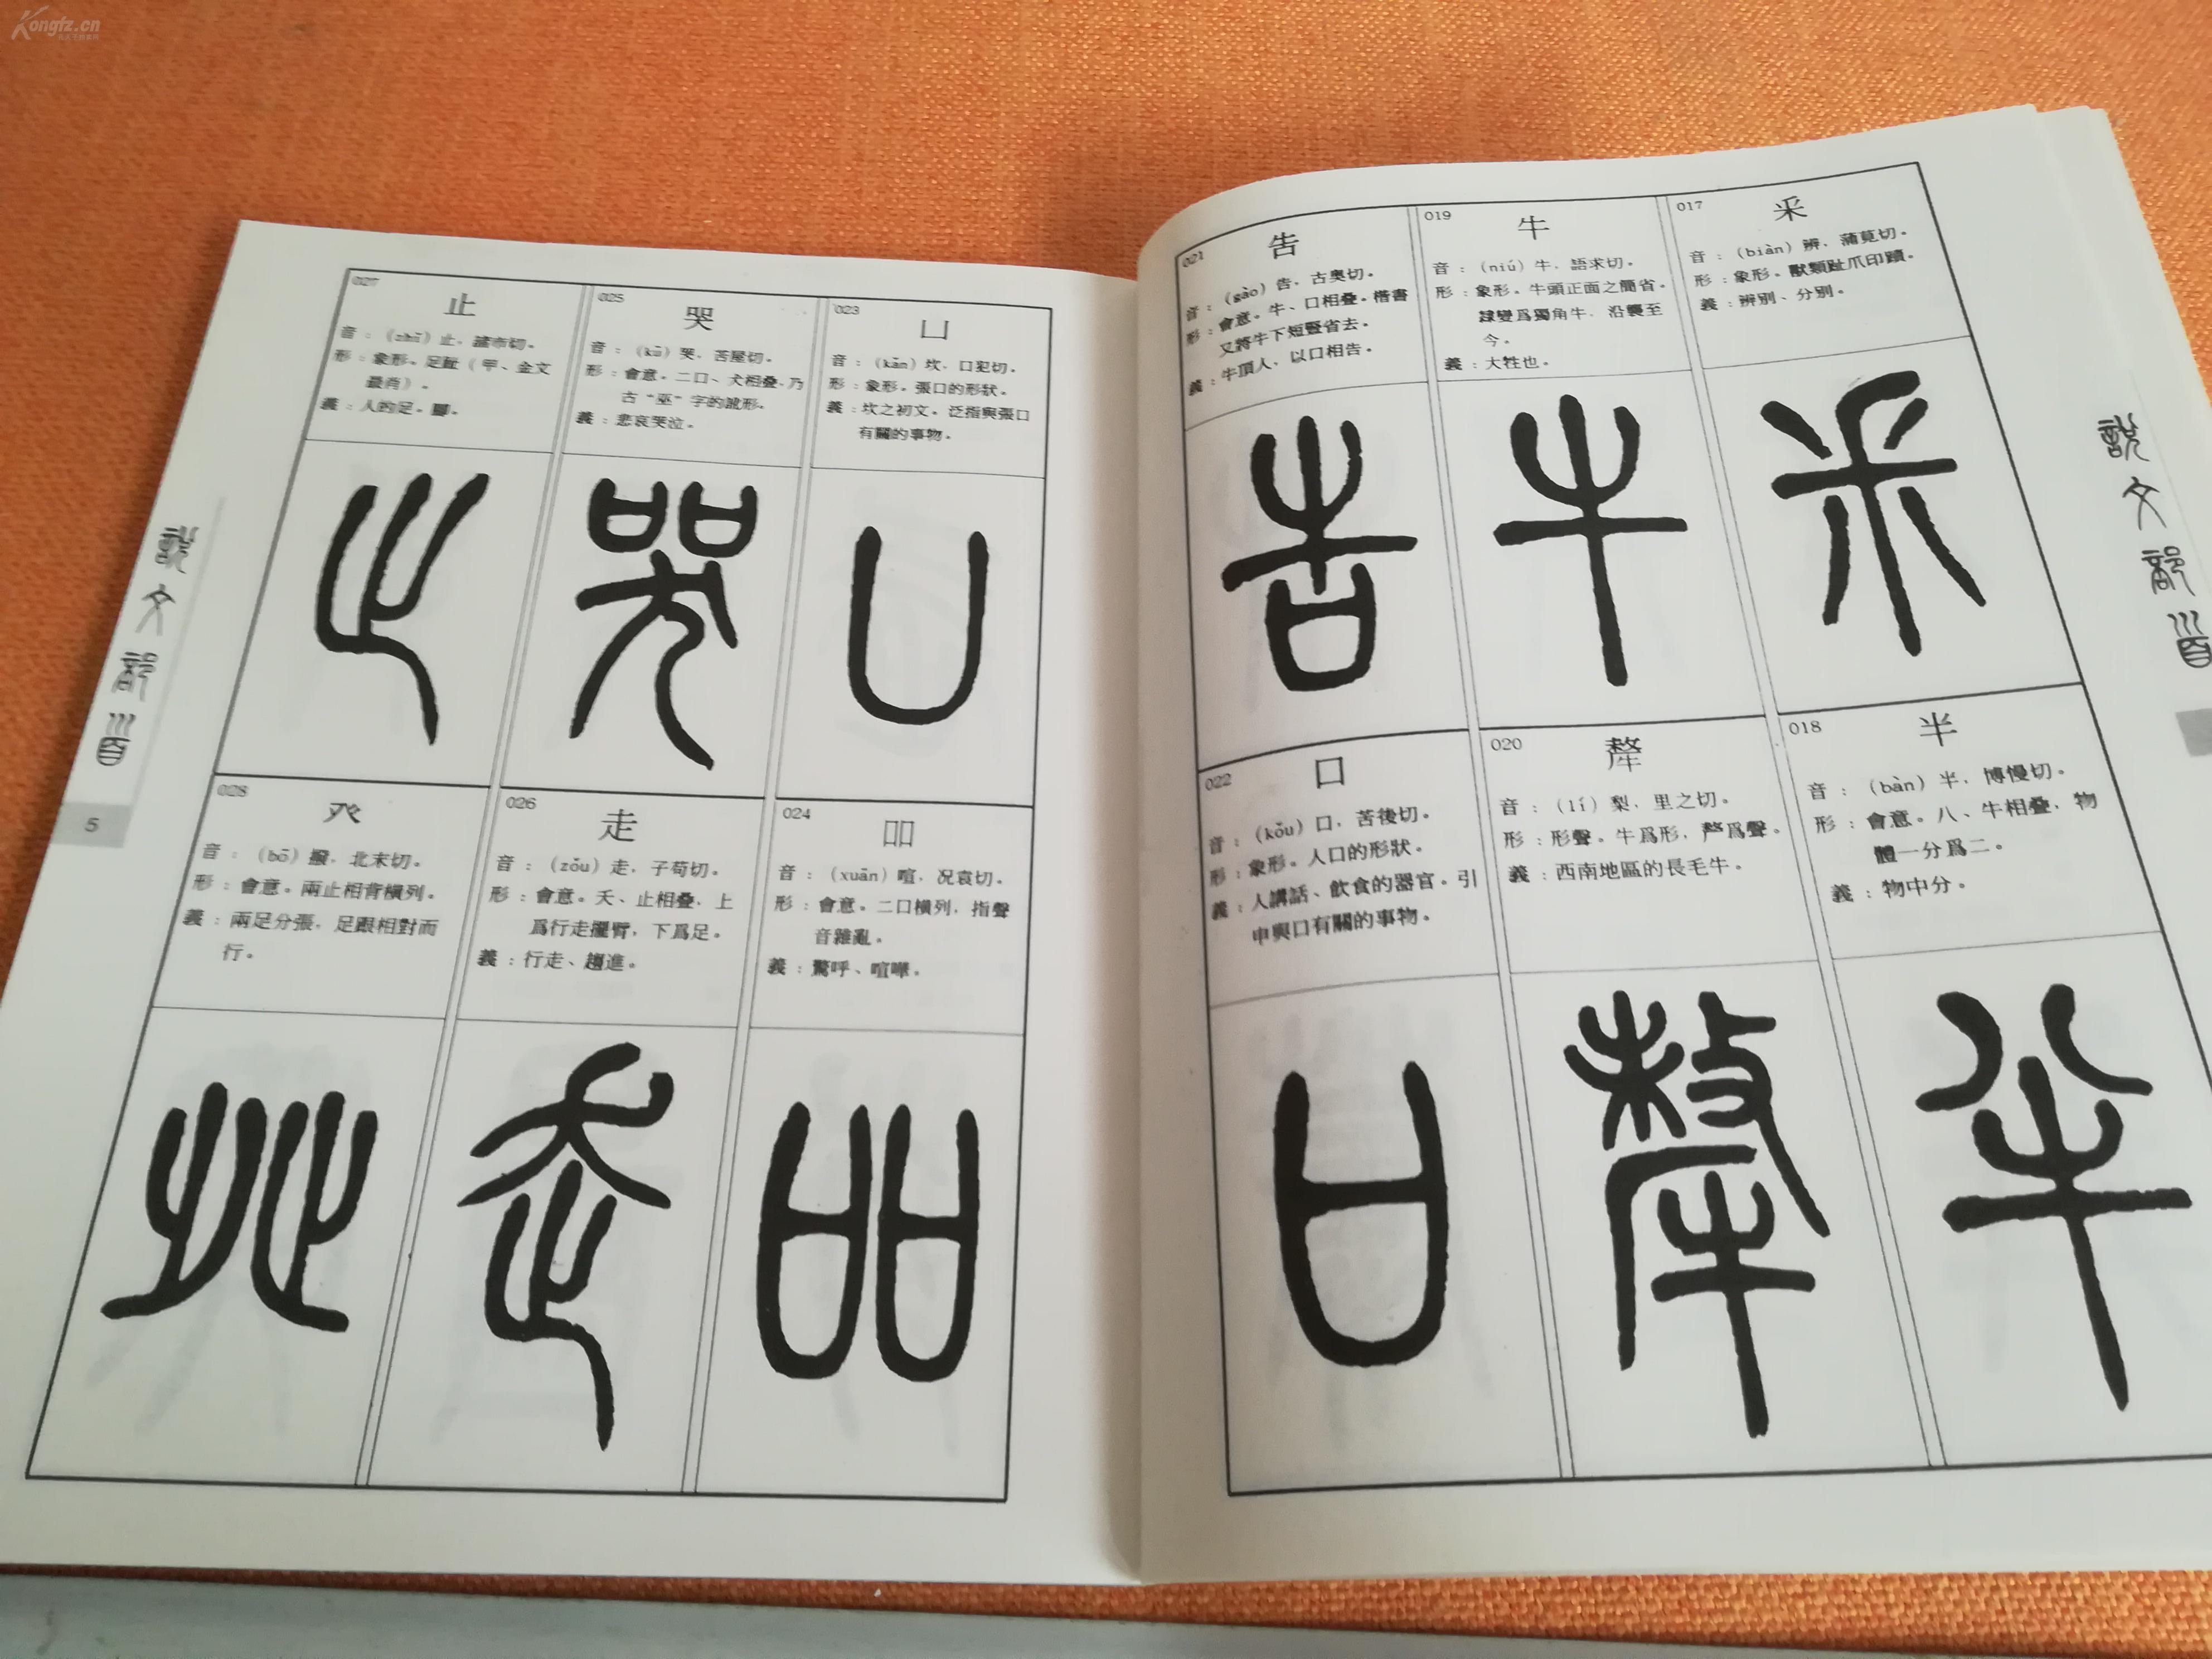 Kongfz.cn
017
釆
音：（biàn）辨，蒲莧切。
形：象形。獸類趾爪印蹟。
義：辨別、分別。
018
半
音：（bàn）半，博慢切。
形：會意。八、牛相疊，物
體一分爲二。
義：物中分。
019
牛
音：（niú）牛，語求切。
形：象形。牛頭正面之簡省。
隸變爲獨角牛，沿襲至
今。
義：大牲也。
020
犛
音：（lí）梨，里之切。
形：形聲。牛爲形，𠩺爲聲。
義：西南地區的長毛牛。
021
告
音：（gào）告，古奧切。
形：會意。牛、口相疊。楷書
又將牛下短豎省去。
義：牛頂人，以口相告。
022
口
音：（kǒu）口，苦後切。
形：象形。人口的形狀。
義：人講話、飲食的器官。引
申與口有關的事物。
023
凵
音：（kǎn）坎，口犯切。
形：象形。張口的形狀。
義：坎之初文。泛指與張口
有關的事物。
024
吅
音：（xuān）喧，况袁切。
形：會意。二口橫列，指聲
音雜亂。
義：驚呼、喧嘩。
025
哭
音：（kū）哭，苦屋切。
形：會意。二口、犬相疊，乃
古“巫”字的訛形。
義：悲哀哭泣。
026
走
音：（zǒu）走，子苟切。
形：會意。夭、止相疊，上
爲行走擺臂，下爲足。
義：行走、趨進。
027
止
音：（zhǐ）止，諸市切。
形：象形。足趾（甲、金文
最肖）。
義：人的足。腳。
028
癶
音：（bō）撥，北末切。
形：會意。兩止相背橫列。
義：兩足分張，足跟相對而
行。
說文部首
說文部首
5